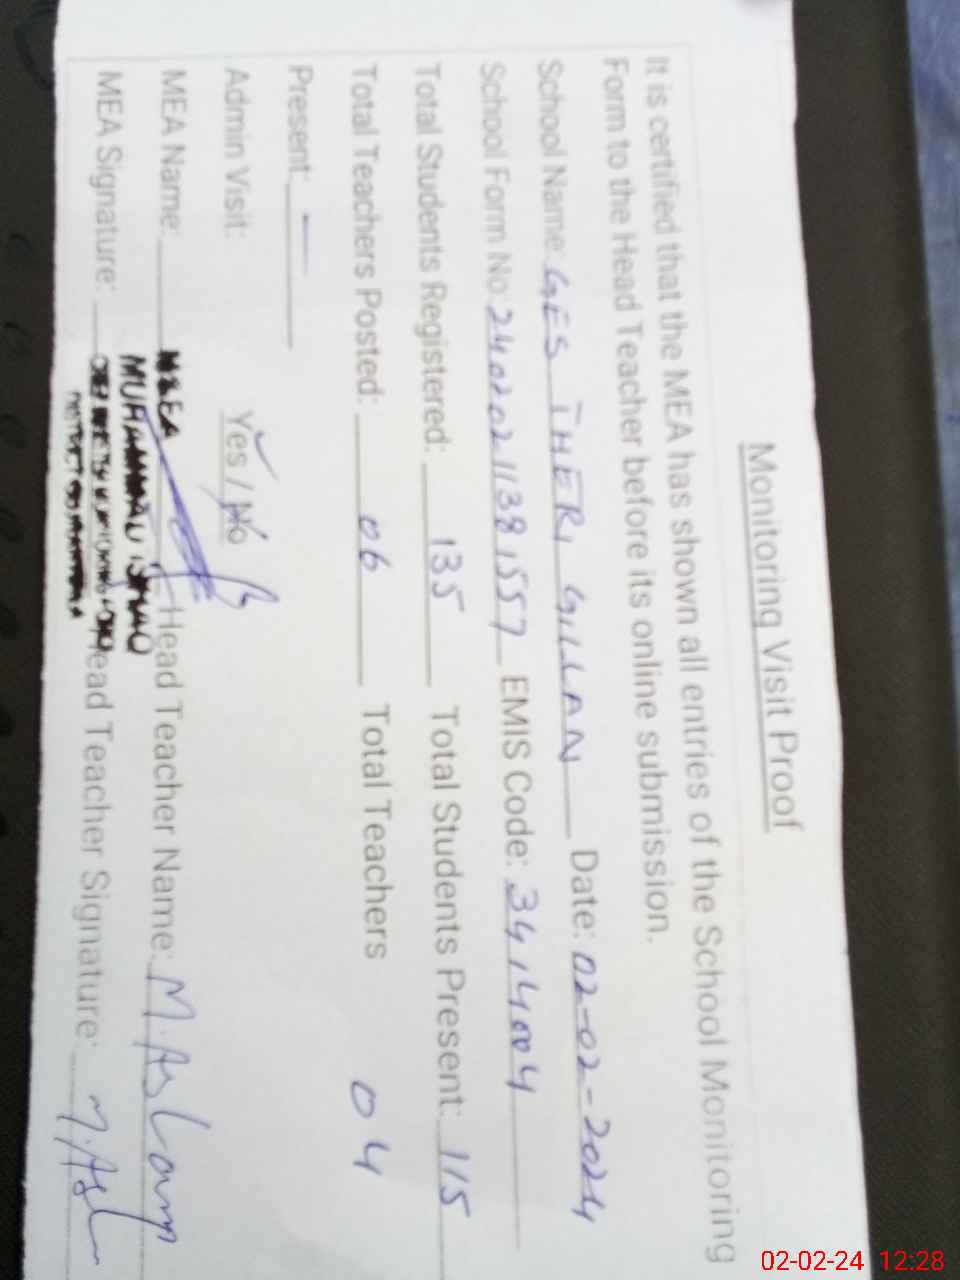 Monitoring Visit Proof
It is certified that the MEA has shown all entries of the School Monitoring
Form to the Head Teacher before its online submission.
School Name: GES THERI GILLAN Date: 02-02-2024
School Form No: 24020211381557 EMIS Code: 3414004
Total Students Registered: 135 Total Students Present: 115
Total Teachers Posted: 06 Total Teachers 04
Present: —
Admin Visit: Yes / No
M&EA
MEA Name: MUHAMMAD ISHAQ Head Teacher Name: M. Aslam
MEA Signature: Head Teacher Signature: M. Asl
02-02-24 12:28